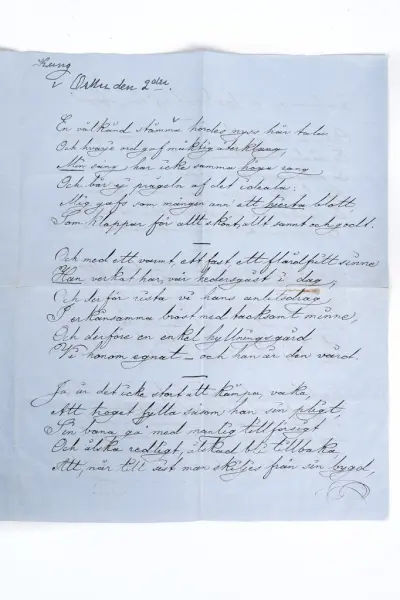 Kung
i Oskar den 2dra.
En välkänd stämma hördes nyss här tala
Och hvarje ord gaf mäktig återklang,
Min sång har icke samma höga rang
Och bär ej prägeln af det ideala:
Mig gafs som mången ann' ett hjerta blott,
Som klappar för allt skönt, allt sannt och godt.
Och med ett varmt ett fast ett flärdfritt sinne
Han verkat har, vår hedersgäst i dag,
Och derför rista vi hans anletsdrag
I erkänsamma bröst med tacksamt minne,
Och derföre en enkel hyllningsgärd
Vi honom egnat – och han är den värd.
Ja är det icke stort att kämpa, vaka,
Att troget fylla såsom han sin pligt,
Sin bana gå med manlig tillförsigt
Och älska redligt, älskad bli tillbaka,
Att, när till sist man skiljes från sin bygd,